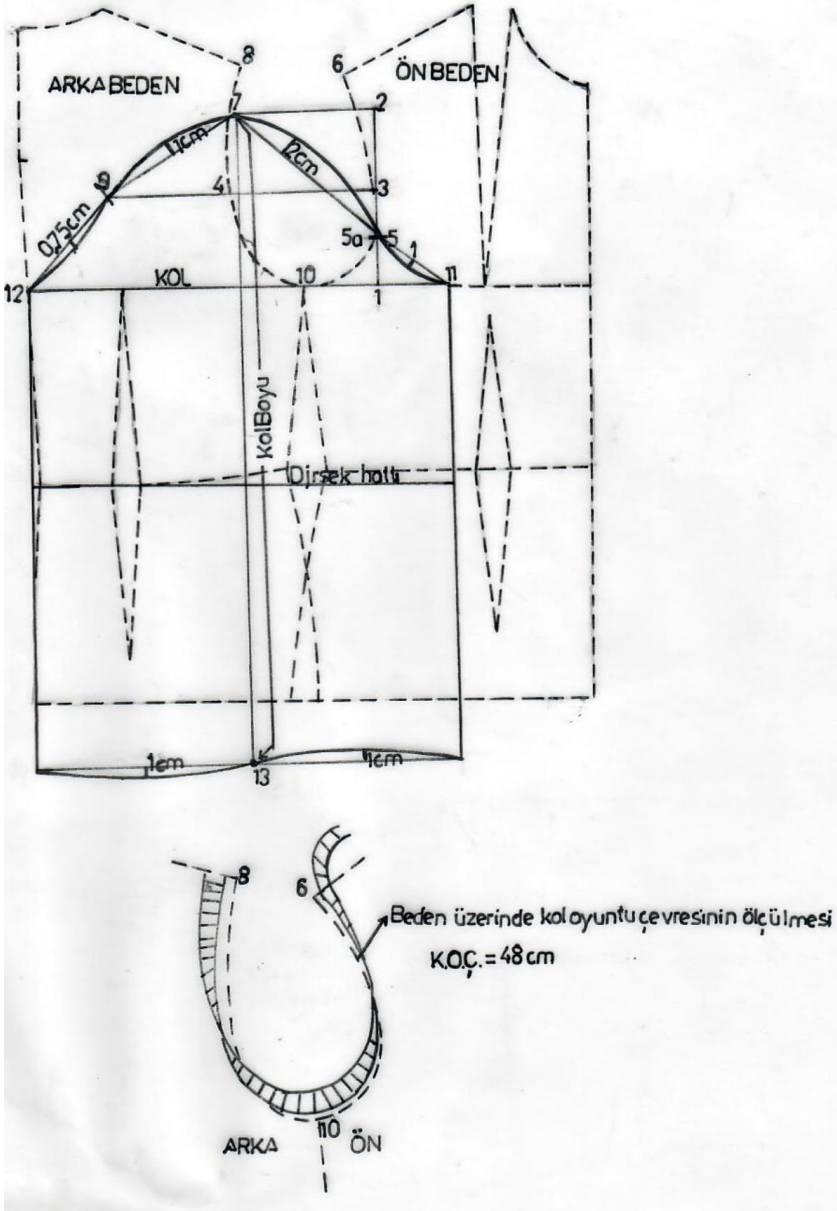 8
6
ARKA BEDEN
ÖN BEDEN
7
2
1cm
2cm
9
4
3
0,75cm
5a
5
1
12
KOL
10
1
11
Kol Boyu
Dirsek hattı
1cm
13
1cm
8
6
Beden üzerinde kol oyuntu çevresinin ölçülmesi
K.O.Ç. = 48 cm
10
ARKA
ÖN